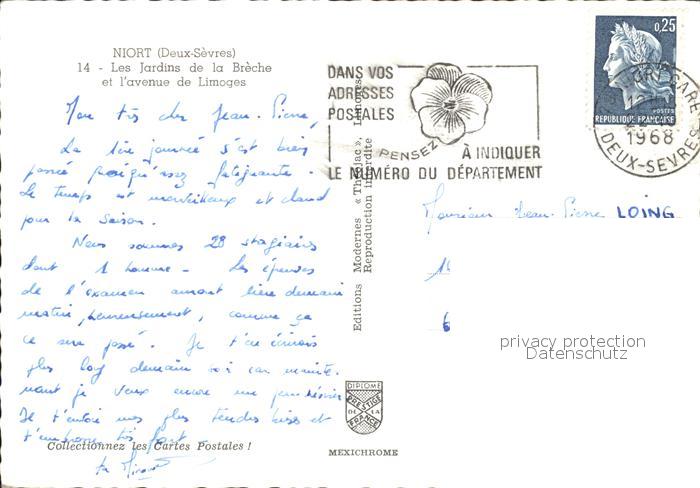 NIORT (Deux-Sèvres)
14 - Les Jardins de la Brèche
et l'avenue de Limoges
DANS VOS
ADRESSES
POSTALES
PENSEZ
À INDIQUER
LE NUMÉRO DU DÉPARTEMENT
0,25
POSTES
REPUBLIQUE FRANÇAISE
GARE
1968
DEUX-SEVRES
Mon très cher Jean-Pierre,
La 1ère journée s'est bien
passée quoiqu'assez fatigante.
Le temps est merveilleux et chaud
pour la saison.
Nous sommes 28 stagiaires
dont 1 homme - Les épreuves
de l'examen auront lieu demain
matin, heureusement, comme ça
ce sera passé. Je t'en écrirais
plus long demain soir car mainte-
nant je veux encore un peu réviser
Je t'envoie mes plus tendres bises et
t'embrasse très fort -
ta
Monsieur Jean-Pierre LOING
14
6
Editions Modernes « Théojac », Limoges
Reproduction interdite
privacy protection
Datenschutz
DIPLOME
PRESTIGE
DE LA
FRANCE
Collectionnez les Cartes Postales !
MEXICHROME